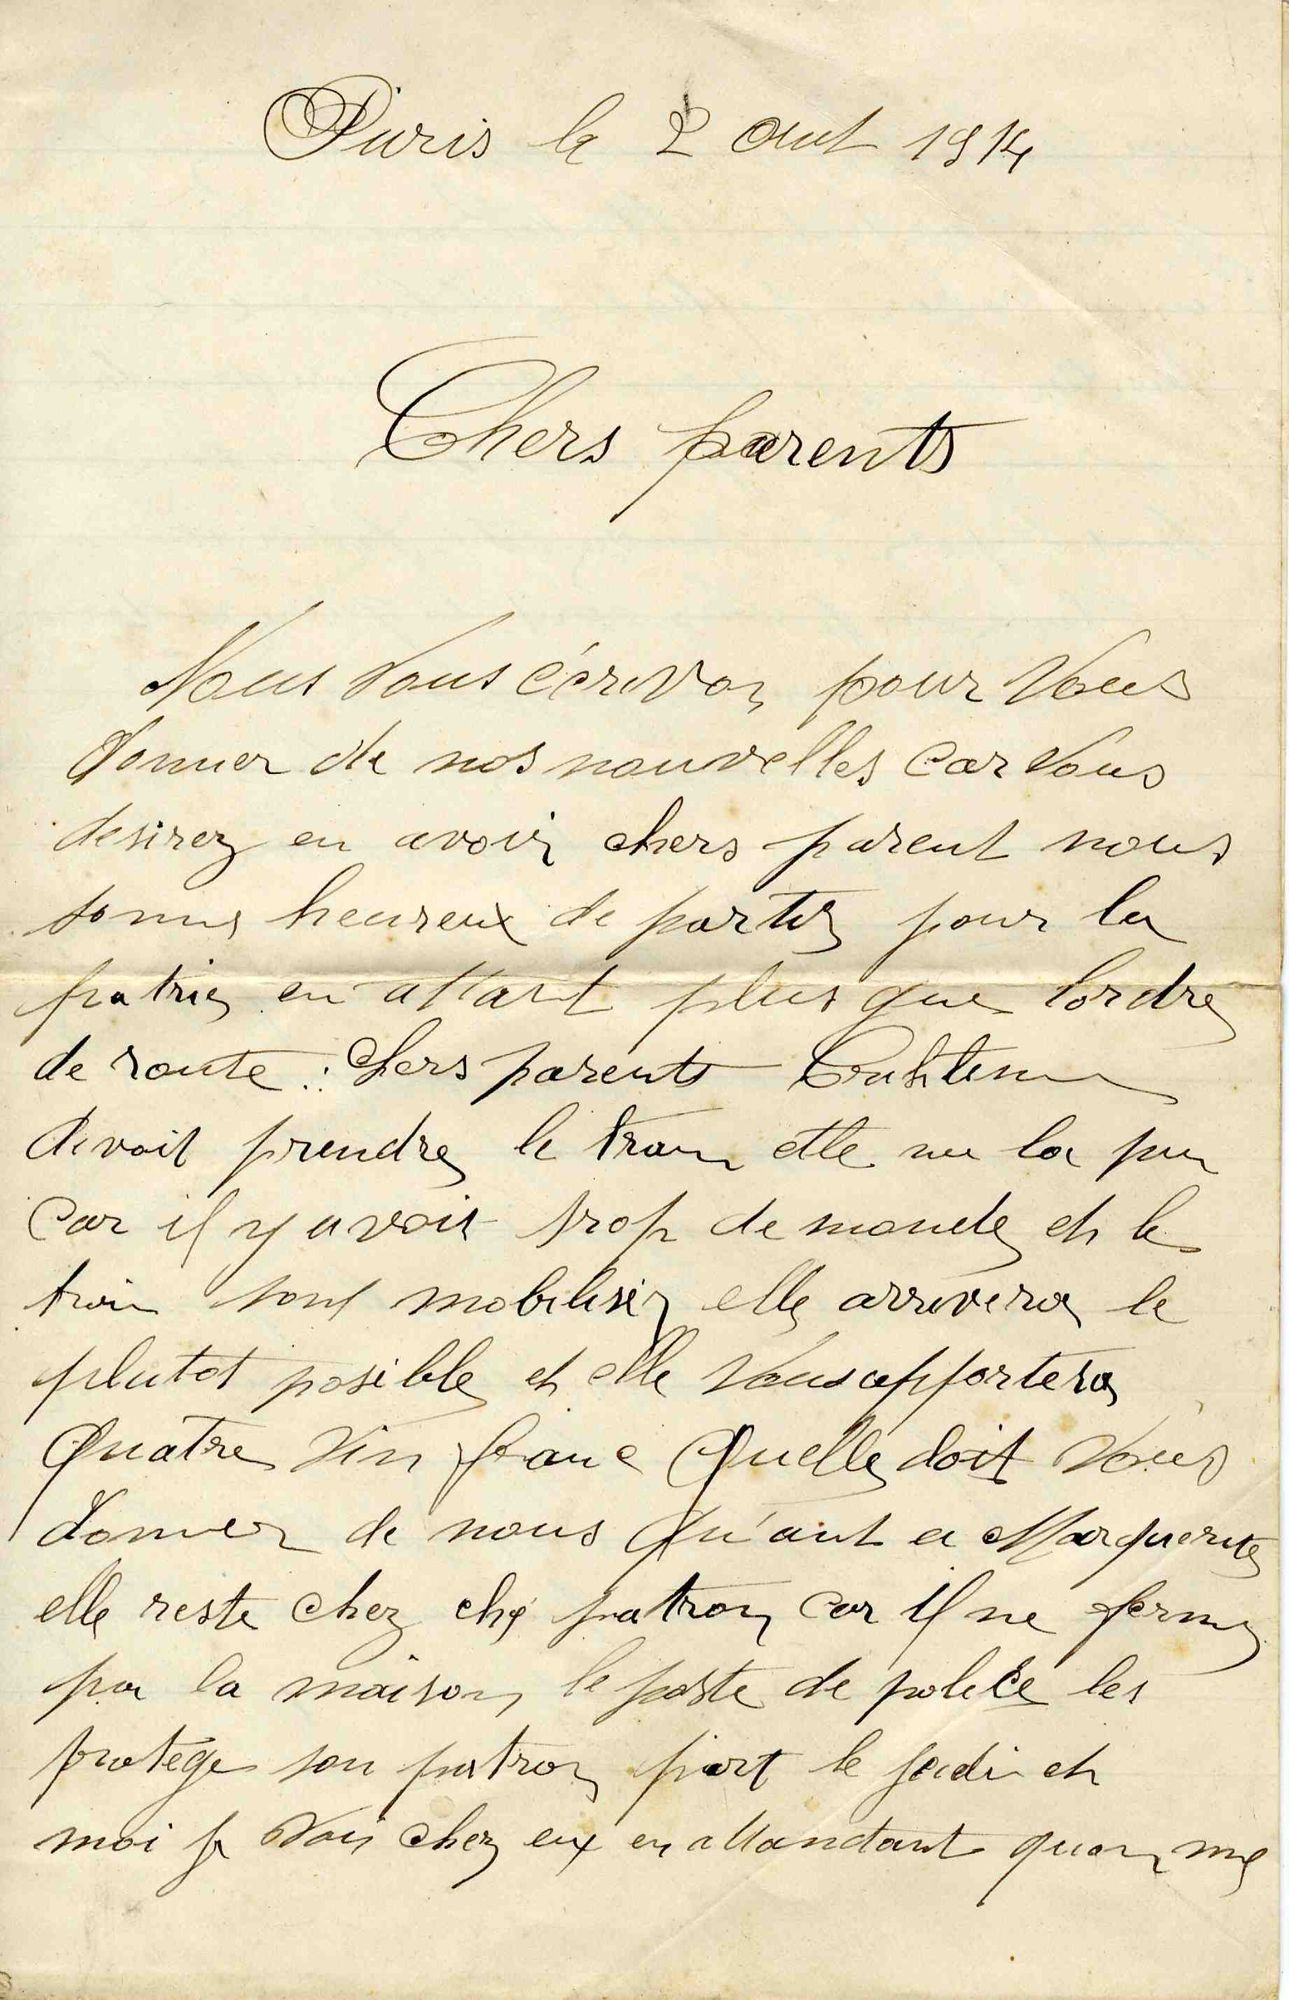 Paris le 2 Out 1914
Chers parents
Nous Vous écrivon pour Vous
donner de nos nouvelles car Vous
desirez en avoir chers parent nous
somes heureux de partir pour la
patrie en attant plus que lordre
de route : Chers parents
devoit prendre le train elle ne la pu
car il y avoit trop de monde et le
train sont mobilisér elle arrivera le
plutot posible et elle Vous apportera
Quatre Vin franc Quelle doit Vous
donner de nous Qu'ant a Marguerite
elle reste chez ché patron car il ne ferme
pa la maison le poste de police les
protege son patron part le jeudi et
moi je Vais chez eux en attandant quon me